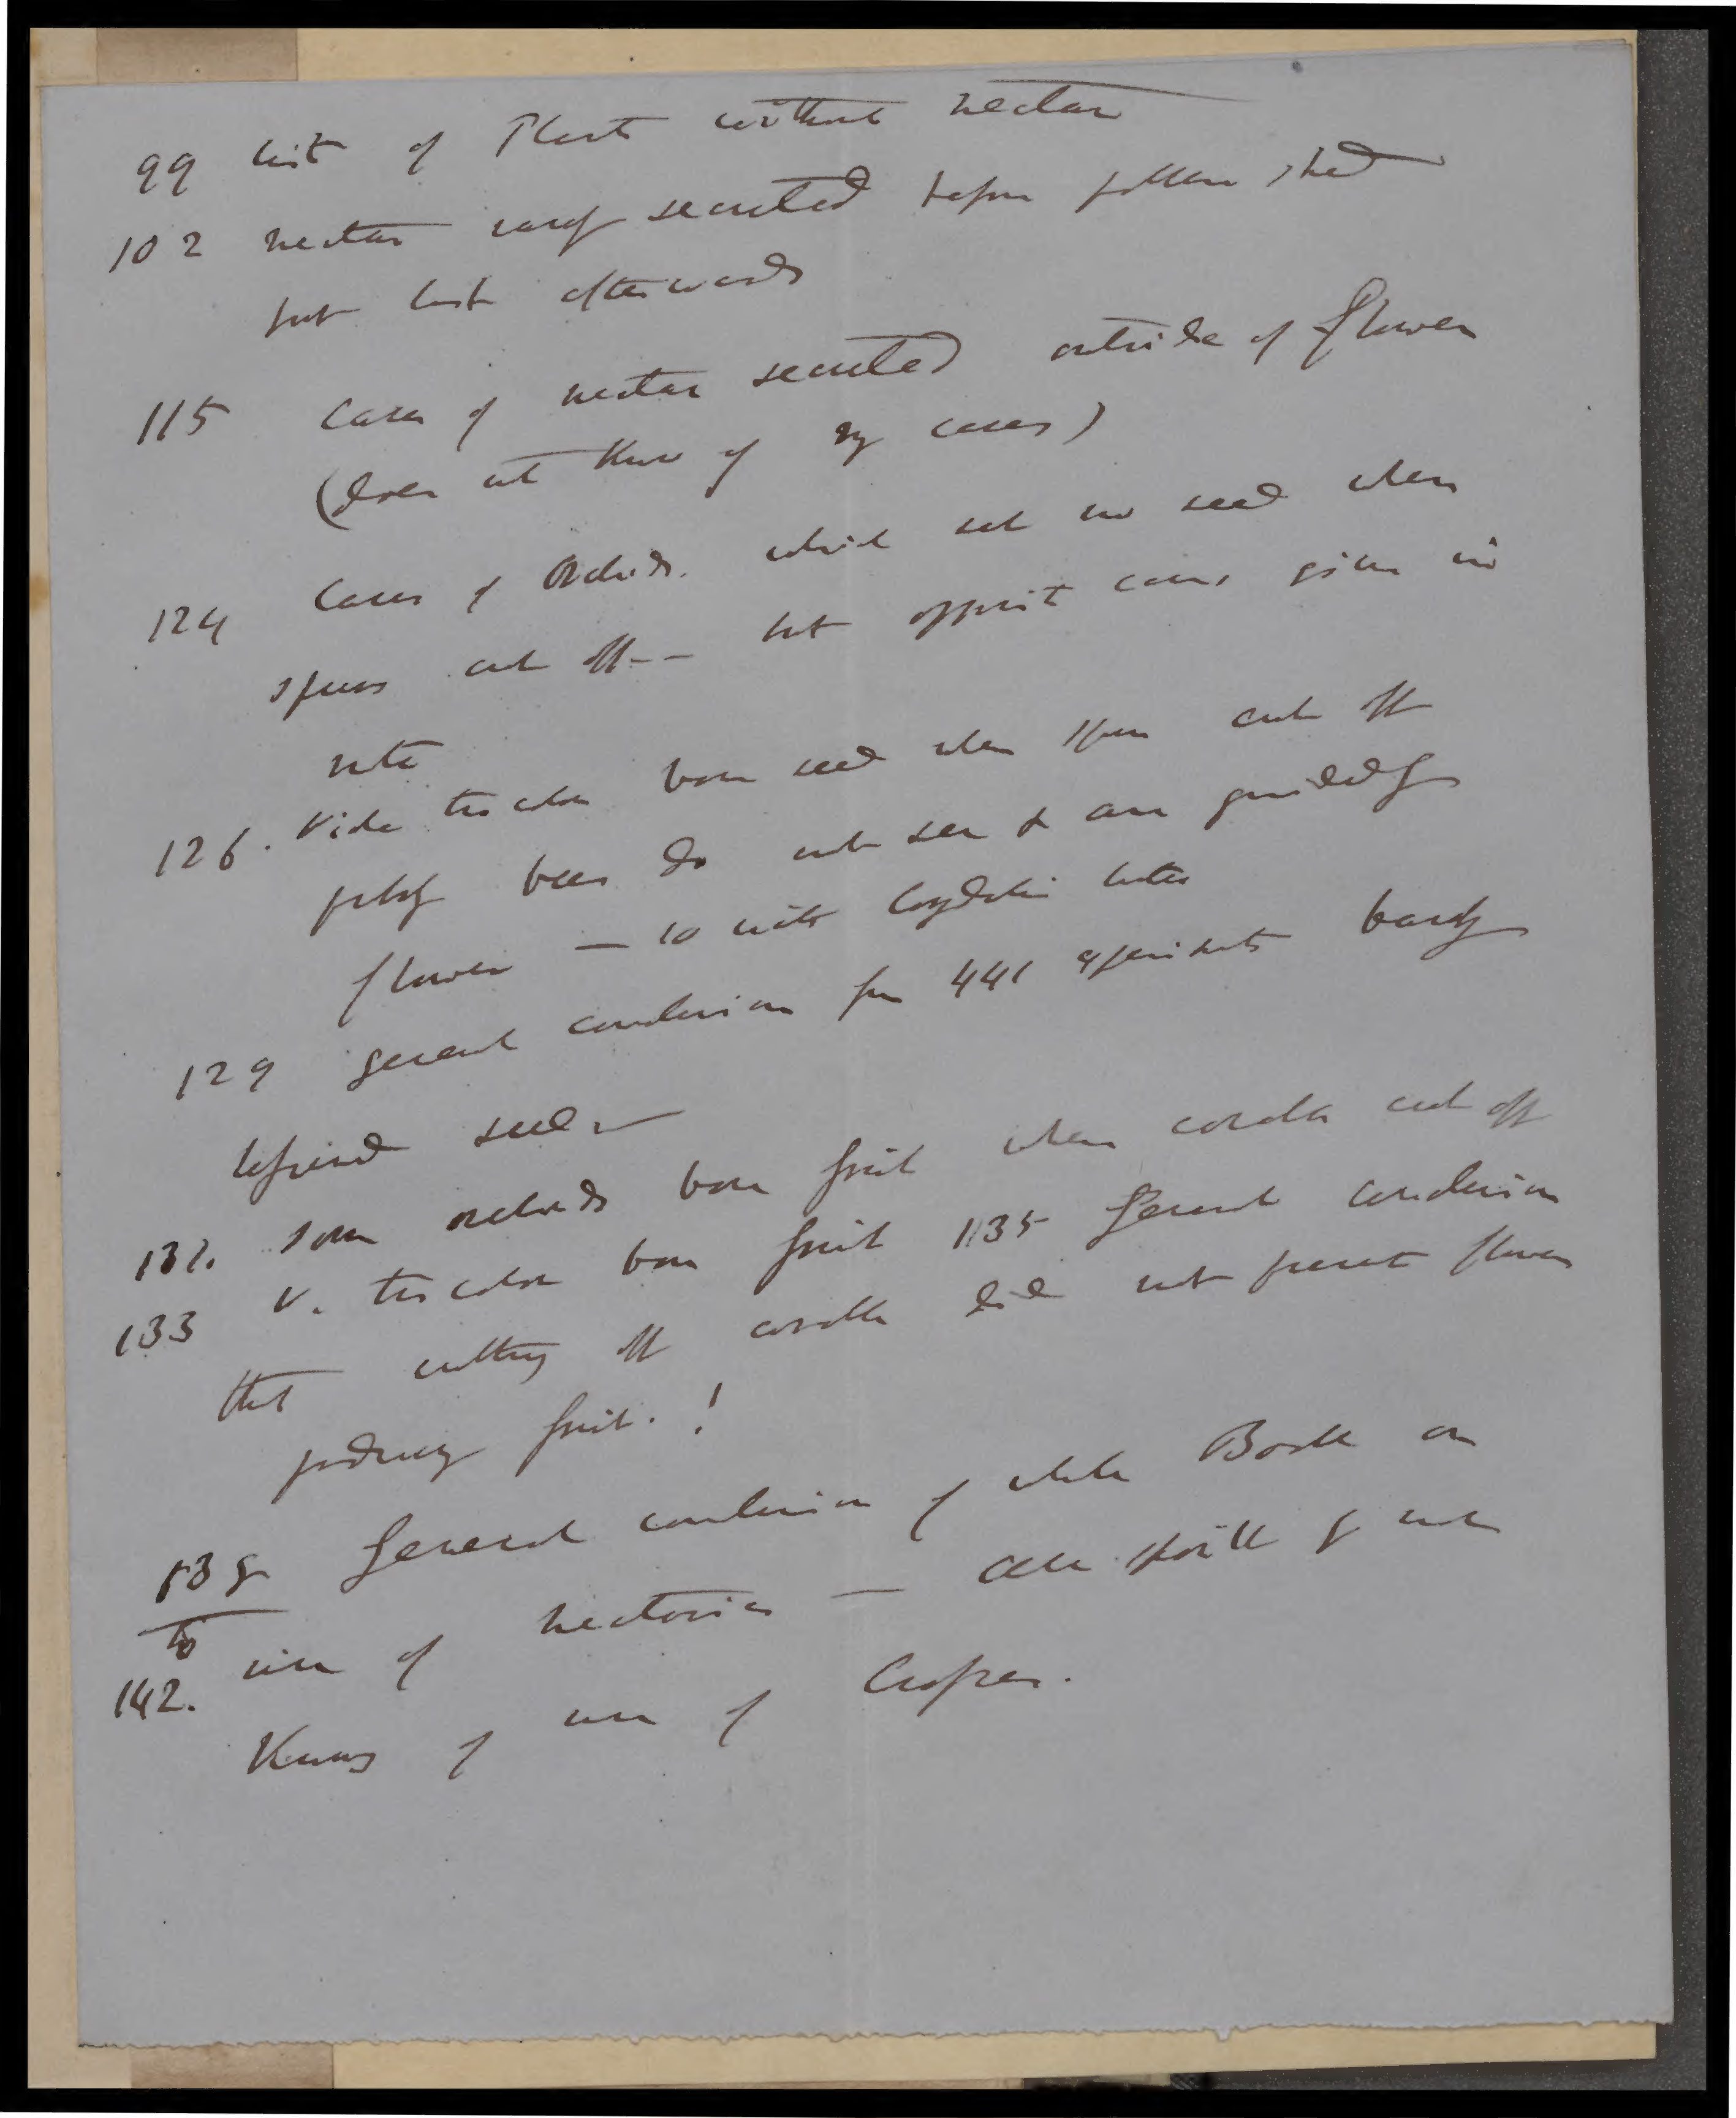 99 List of Plants without nectar
102 nectar rarely secreted before pollen shed
but lasts afterwards
115 Cases of nectar secreted outside of flower
(does not know of my cases)
124 Cases of Orchids. which set no seed when
spurs cut off -- but opposite cases given in
note
126. Viola tricolor bore seed when spur cut off
probably bees do not see & are guided by
flower — so with Corydalis lutea
129 general conclusion from 441 experiments hardly
seed —
132. Some orchids bore fruit when corolla cut off
133 V. tricolor bore fruit 135 General conclusion
that cutting off corolla did not prevent flower
producing fruit. !
138 General conclusion of whole Book on
to
142. use of nectaries — all spoilt by not
Knowing of use of